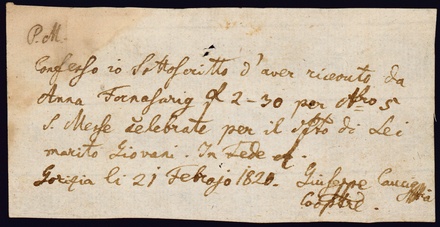 P.M.
Confesso io Sottoscritto d'aver riceuto da
Anna Fornasarig f 2-30 per Nro 5
S. Messe celebrate per il fto di Lei
marito Giovani. In Fede
Gorizia li 21 Febrajo 182
Giuseppe